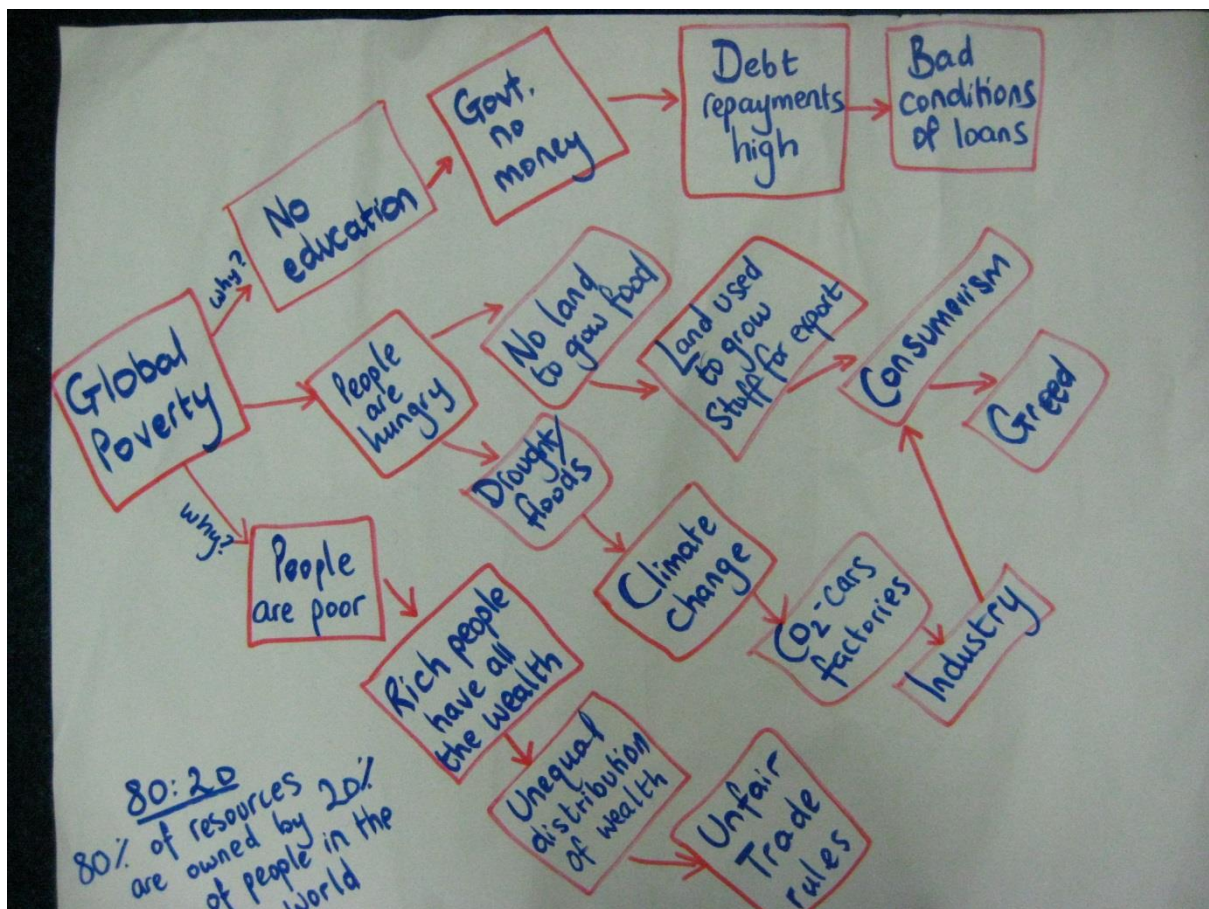 Govt.
no
money
Debt
repayments
high
Bad
conditions
of loans
No
education
why?
Global
Poverty
People
are
hungry
No land
to grow food
Land used
to grow
Stuff for export
Consumerism
Greed
Drought/
floods
Climate
change
CO2-cars
factories
Industry
why?
People
are poor
Rich people
have all
the wealth
Unequal
distribution
of wealth
Unfair
Trade
rules
80:20
80% of resources
are owned by 20%
of people in the
World